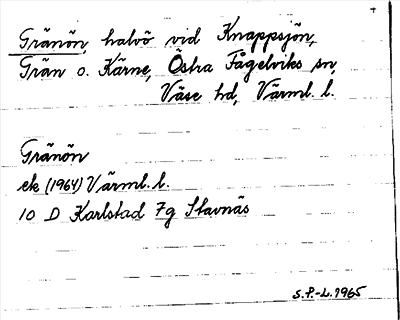 Gränön, halvö vid Knappsjön,
Grän o. Kärne, Östra Fågelviks sn,
Väse hd, Värml. l.
Gränön
ek (1964) Värml. l.
10 D Karlstad 7g Stavnäs
S.P.-L. 1965